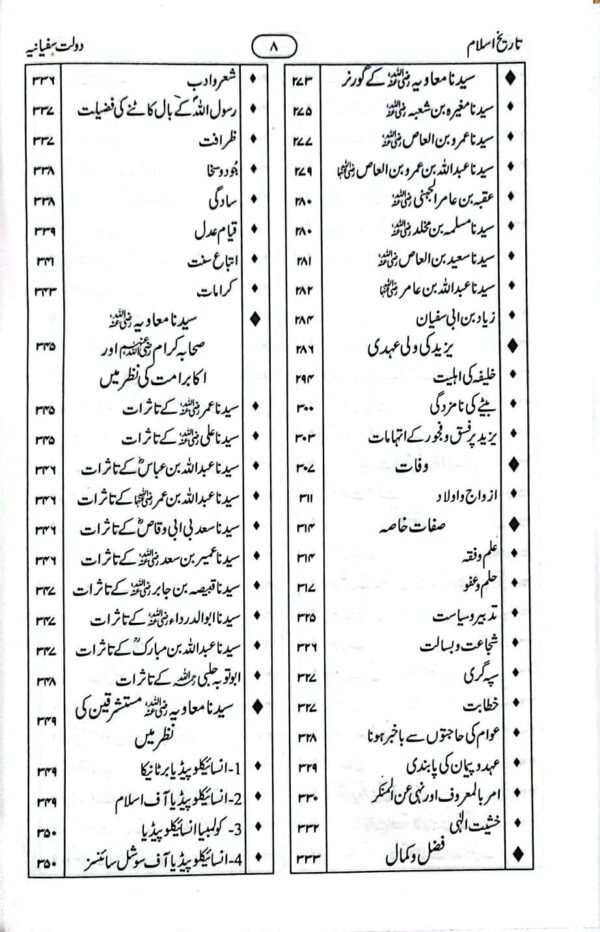 تاریخ اسلام ۸ دولت سفیانیہ
سیدنا معاویہ رضی اللہ عنہ کے گورنر ۲۷۳
سیدنا مغیرہ بن شعبہ رضی اللہ عنہ ۲۷۵
سیدنا عمرو بن العاص رضی اللہ عنہ ۲۷۷
سیدنا عبداللہ بن عمرو بن العاص رضی اللہ عنہما ۲۷۹
عقبہ بن عامر الجہنی رضی اللہ عنہ ۲۸۰
سیدنا مسلمہ بن مخلد رضی اللہ عنہ ۲۸۰
سیدنا سعید بن العاص رضی اللہ عنہ ۲۸۱
سیدنا عبداللہ بن عامر رضی اللہ عنہما ۲۸۲
زیاد بن ابی سفیان ۲۸۴
یزید کی ولی عہدی ۲۸۶
خلیفہ کی اہلیت ۲۹۴
بیٹے کی نامزدگی ۳۰۰
یزید پر فسق و فجور کے اتہامات ۳۰۳
وفات ۳۰۷
ازواج و اولاد ۳۱۱
صفات خاصہ ۳۱۴
علم و فقہ ۳۱۴
حلم و عفو ۳۱۷
تدبیر و سیاست ۳۲۵
شجاعت و بسالت ۳۲۶
سپہ گری ۳۲۷
خطابت ۳۲۷
عوام کی حاجتوں سے باخبر ہونا ۳۲۸
عہد و پیمان کی پابندی ۳۲۹
امر بالمعروف اور نہی عن المنکر ۳۳۰
خشیت الٰہی ۳۳۲
فضل و کمال ۳۳۳
شعر و ادب ۳۳۶
رسول اللہ کے بال کاٹنے کی فضیلت ۳۳۷
ظرافت ۳۳۷
جُود و سخا ۳۳۸
سادگی ۳۳۸
قیام عدل ۳۳۹
اتباع سنت ۳۴۱
کرامات ۳۴۳
سیدنا معاویہ رضی اللہ عنہ
صحابہ کرام رضی اللہ عنہم اور ۳۴۵
اکابر امت کی نظر میں
سیدنا عمر رضی اللہ عنہ کے تاثرات ۳۴۵
سیدنا علی رضی اللہ عنہ کے تاثرات ۳۴۵
سیدنا عبداللہ بن عباسؓ کے تاثرات ۳۴۶
سیدنا عبداللہ بن عمر رضی اللہ عنہما کے تاثرات ۳۴۶
سیدنا سعد بی ابی وقاصؓ کے تاثرات ۳۴۶
سیدنا عمیر بن سعد رضی اللہ عنہ کے تاثرات ۳۴۶
سیدنا قبیصہ بن جابر رضی اللہ عنہ کے تاثرات ۳۴۷
سیدنا ابوالدرداء رضی اللہ عنہ کے تاثرات ۳۴۷
سیدنا عبداللہ بن مبارکؒ کے تاثرات ۳۴۷
ابوتوبہ حلبی رحمہ اللہ کے تاثرات ۳۴۸
سیدنا معاویہ رضی اللہ عنہ مستشرقین کی
نظر میں ۳۴۹
1- انسائیکلو پیڈیا برٹانیکا ۳۴۹
2- انسائیکلو پیڈیا آف اسلام ۳۴۹
3- کولمبیا انسائیکلو پیڈیا ۳۵۰
4- انسائیکلو پیڈیا آف سوشل سائنسز ۳۵۰